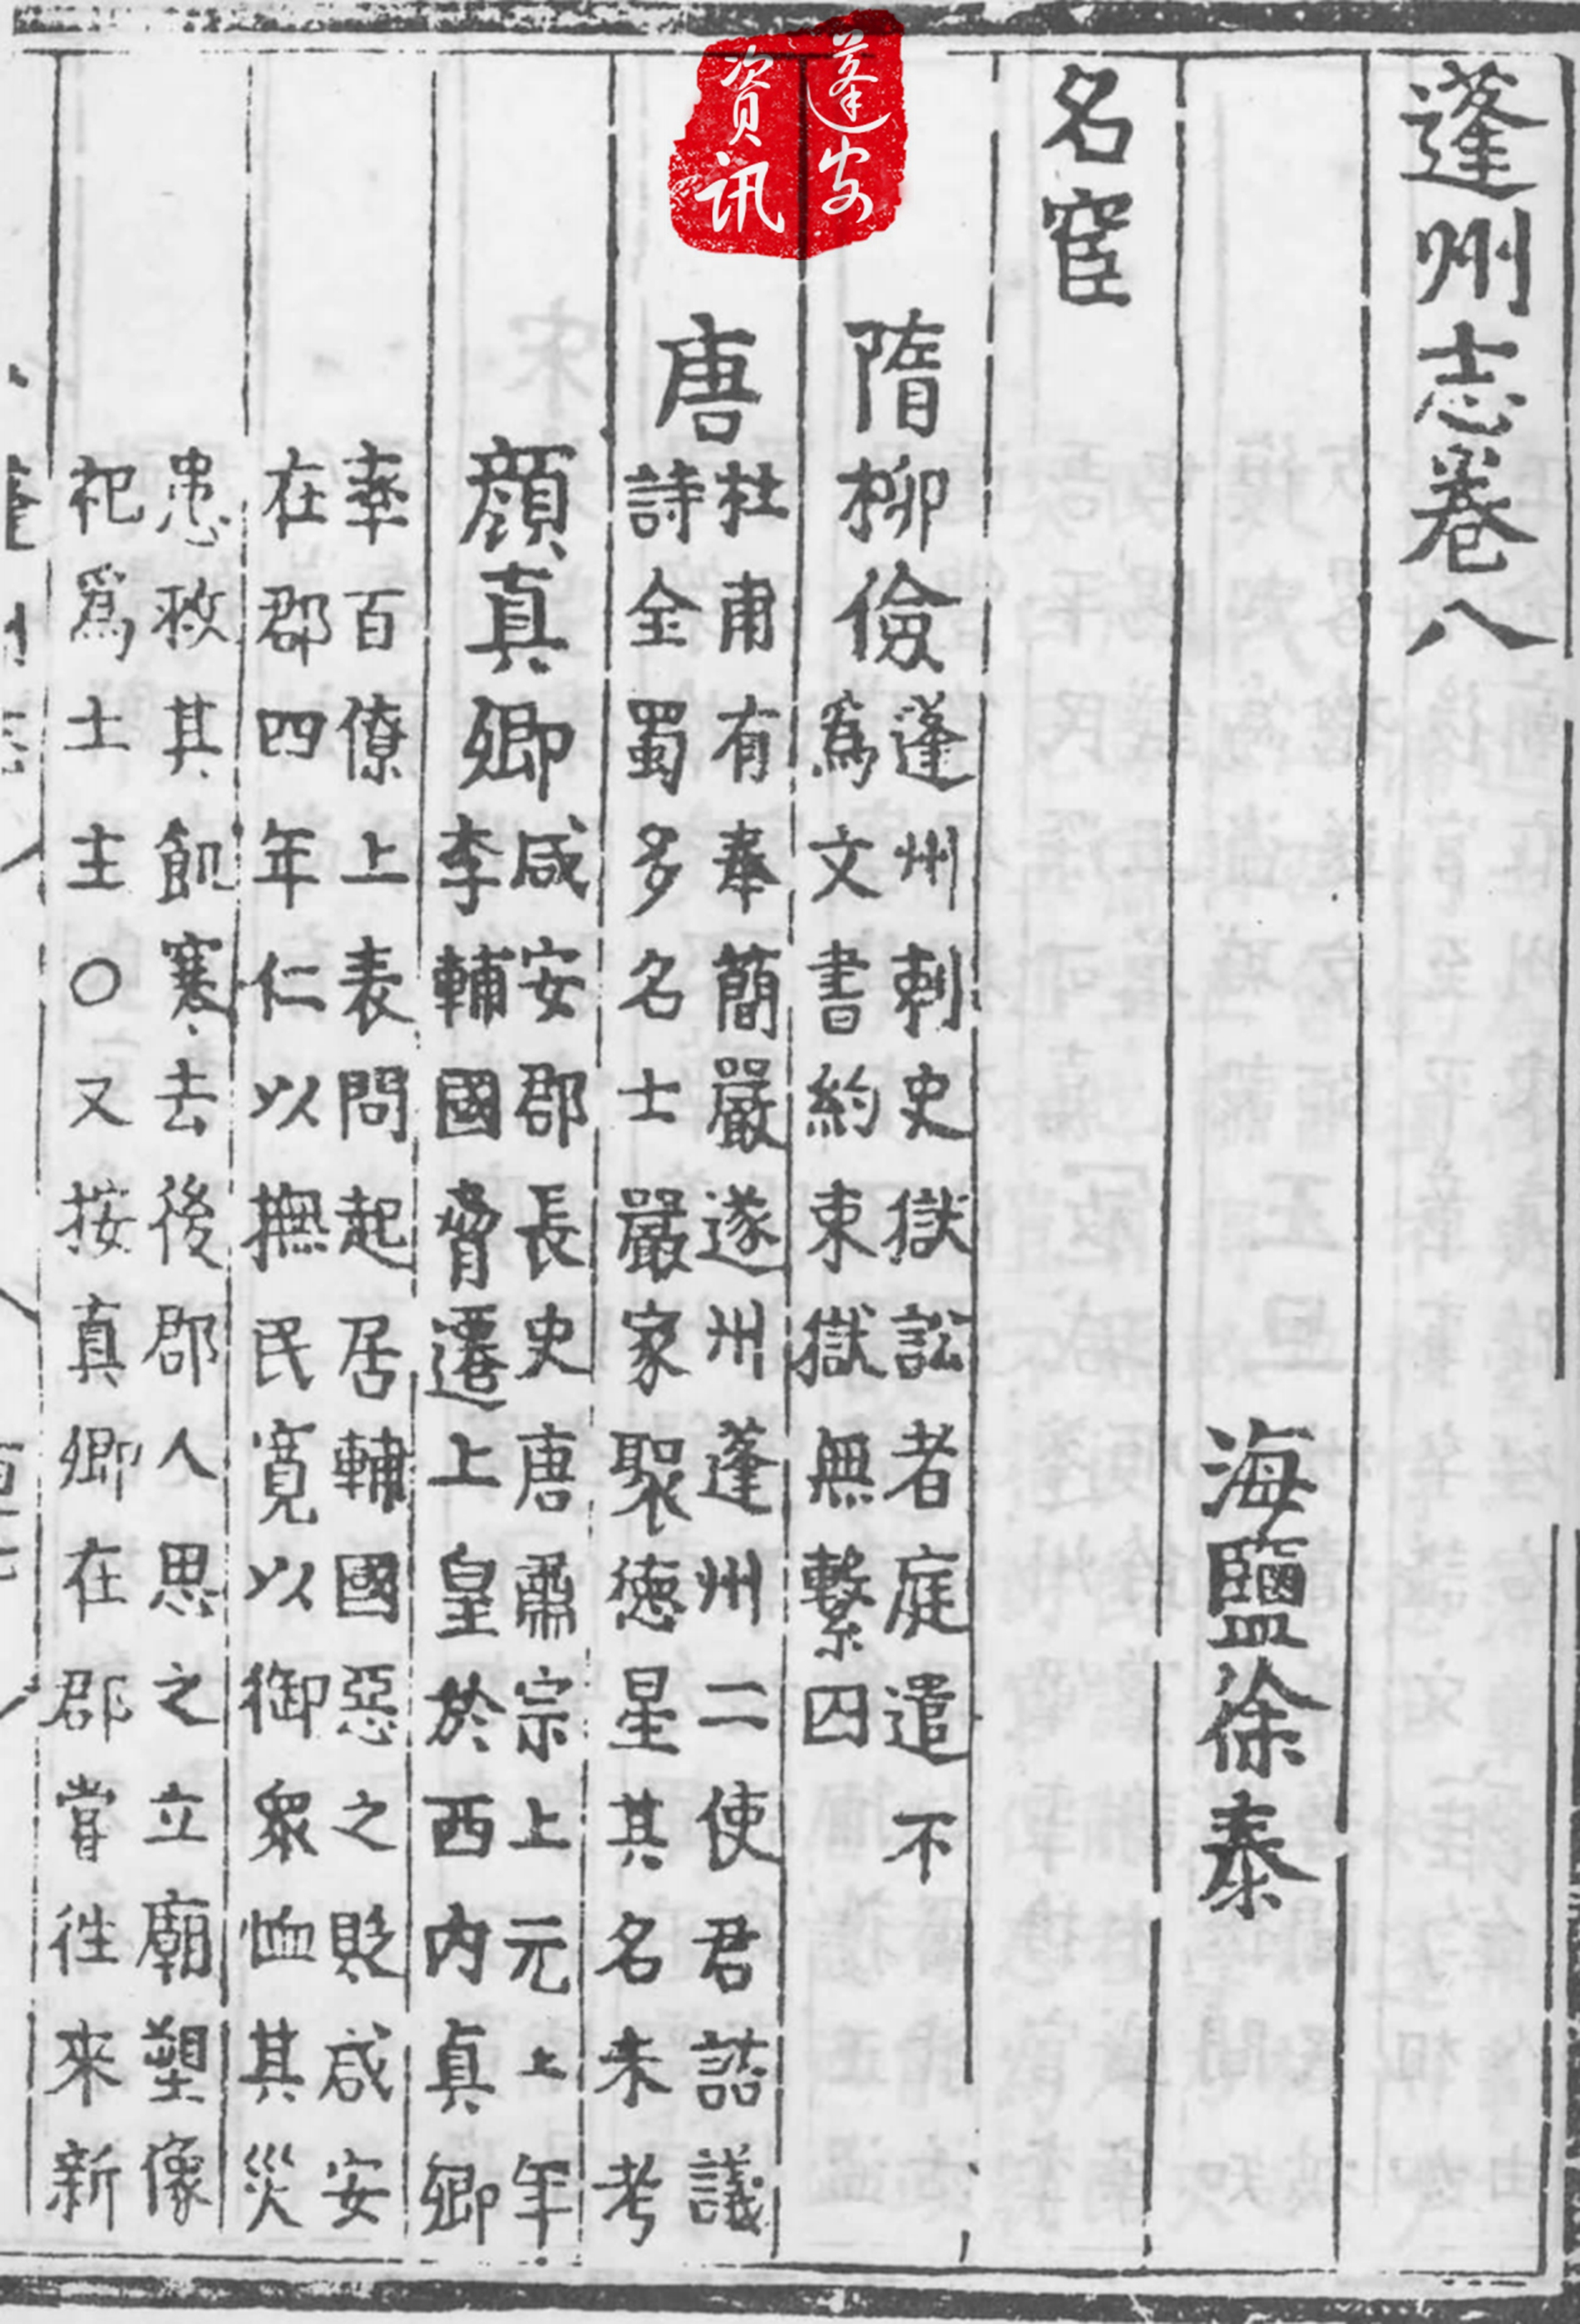 蓬州志卷八
海鹽徐泰
名宦
隋
柳儉
蓬州刺史獄訟者庭遣不
爲文書約束獄無繫囚
唐
杜甫有奉簡嚴遂州蓬州二使君諮議
詩全蜀多名士嚴家聚德星其名未考
顔真卿
咸安郡長史唐肅宗上元上年
李輔國脅遷上皇於西內真卿
率百僚上表問起居輔國惡之貶咸安
在郡四年仁以撫民寛以御衆恤其災
患救其飢寒去後郡人思之立廟塑像
祀爲土主○又按真卿在郡嘗徃來新
蓬安
资讯